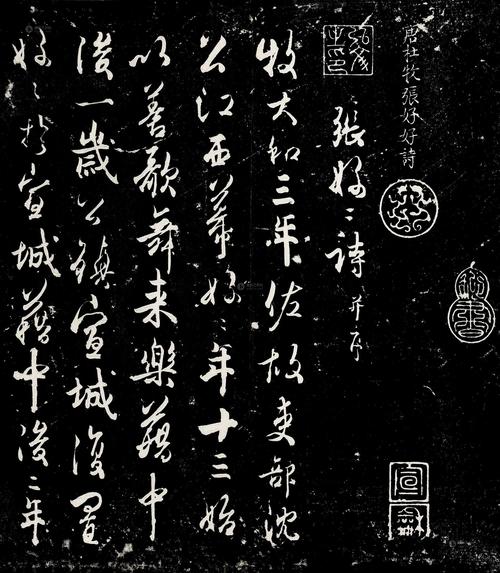 唐杜牧張好好詩
張好〻詩并序
牧大和三年佐故吏部沈
公江西幕好〻年十三始
以善歌舞来樂籍中
後一歲公鎮宣城復置
好〻於宣城籍中後二年
宣龢